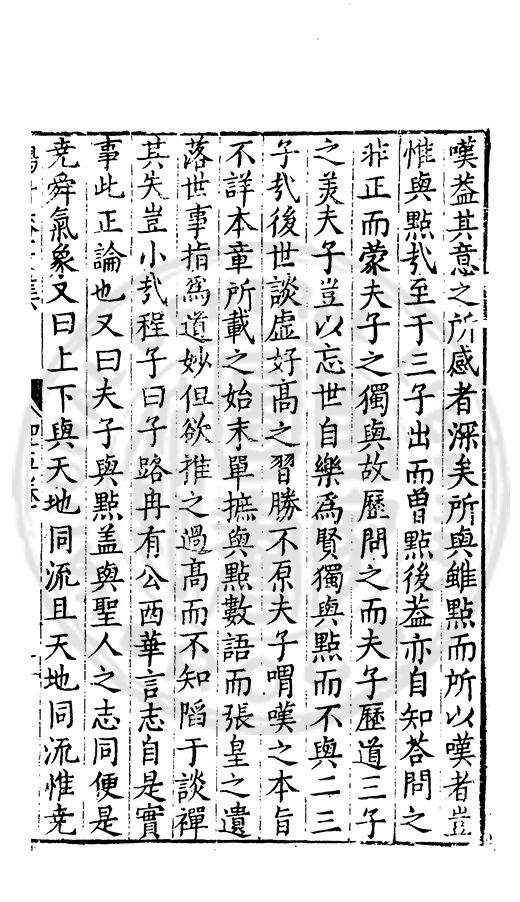 嘆葢其意之所感者深矣所與雖點而所以嘆者豈
惟與點㢤至于三子出而曽點後葢亦自知荅問之
非正而蒙夫子之獨與故歷問之而夫子歷道三子
之羙夫子豈以忘世自樂爲賢獨與點而不與二三
子㢤後世談虛好髙之習勝不原夫子喟嘆之本旨
不詳本章所載之始末單摭與點數語而張皇之遺
落世事指爲道妙但欲推之過髙而不知䧟于談禪
其失豈小㢤程子曰子路冉有公西華言志自是實
事此正論也又曰夫子與點盖與聖人之志同便是
尭舜氣象又曰上下與天地同流且天地同流惟尭